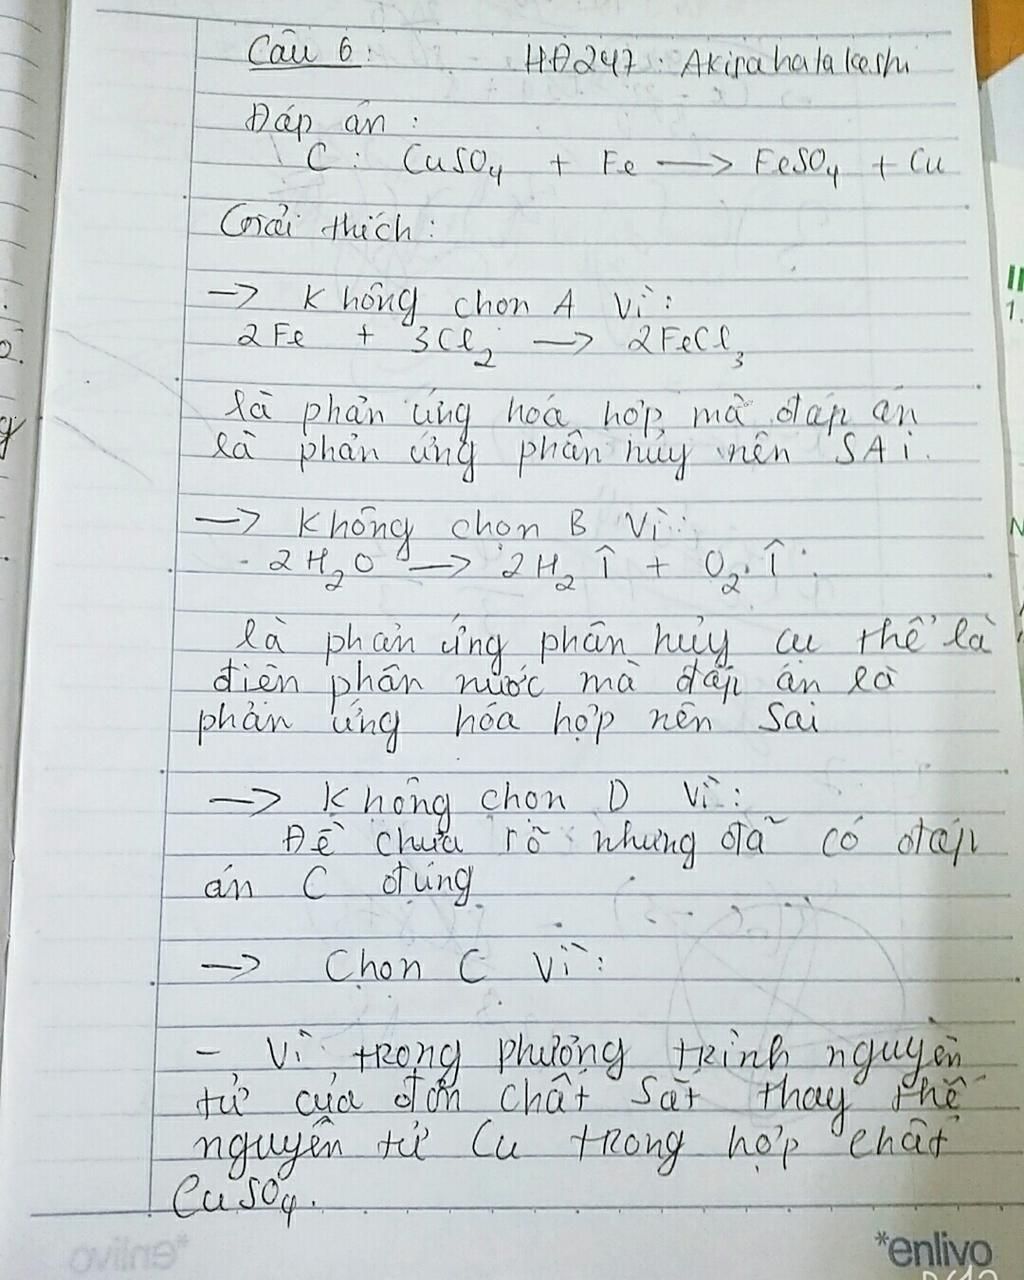 Câu 6: HĐ247: Akirahatakeshi
Đáp án:
C: CuSO₄ + Fe → FeSO₄ + Cu
Giải thích:
→ Không chọn A Vì:
2Fe + 3Cl₂ → 2FeCl₃
là phản ứng hóa hợp, mà đáp án
là phản ứng phân hủy nên SAi.
→ Không chọn B Vì:
2H₂O → 2H₂↑ + O₂↑
là phản ứng phân hủy cụ thể là
điện phân nước mà đáp án là
phản ứng hóa hợp nên Sai
→ Không chọn D Vì:
Đề chưa rõ nhưng đã có đáp
án C đúng
→ Chọn C Vì:
- Vì trong phương trình nguyên
tử của đơn chất Sắt thay thế
nguyên tử Cu trong hợp chất
CuSO₄.
*enlivo